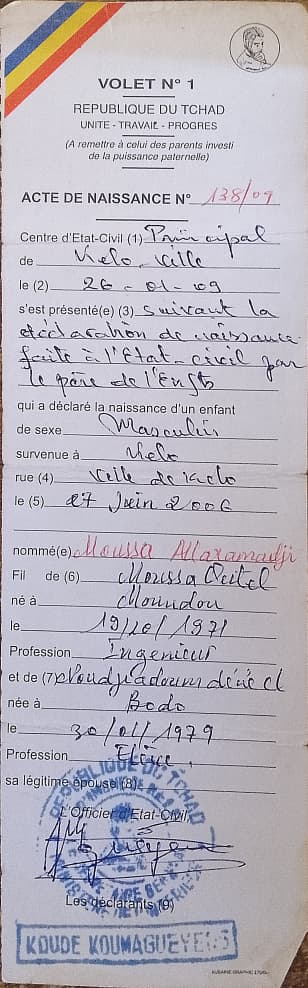 VOLET N° 1
REPUBLIQUE DU TCHAD
UNITE - TRAVAIL - PROGRES
(A remettre à celui des parents investi
de la puissance paternelle)
ACTE DE NAISSANCE N° 138/09
Centre d'Etat-Civil (1) Principal
de Kelo-Ville
le (2) 26-01-09
s'est présenté(e) (3) suivant la
déclaration de naissance
faite à l'Etat-civil par
le père de l'Enft
qui a déclaré la naissance d'un enfant
de sexe Masculin
survenue à Kelo
rue (4) Ville de Kelo
le (5) 27 Juin 2006
nommé(e) Moussa Allaramadji
Fil de (6) Moussa
né à Moundou
le 19/10/1971
Profession Ingenieur
et de (7)
née à Bodo
le 30/01/1979
Profession Elève
sa légitime épouse (8)
L'Officier d'Etat-Civil
REPUBLIQUE DU TCHAD
Les déclarants (9)
KOUDE KOUMAGUEYENG